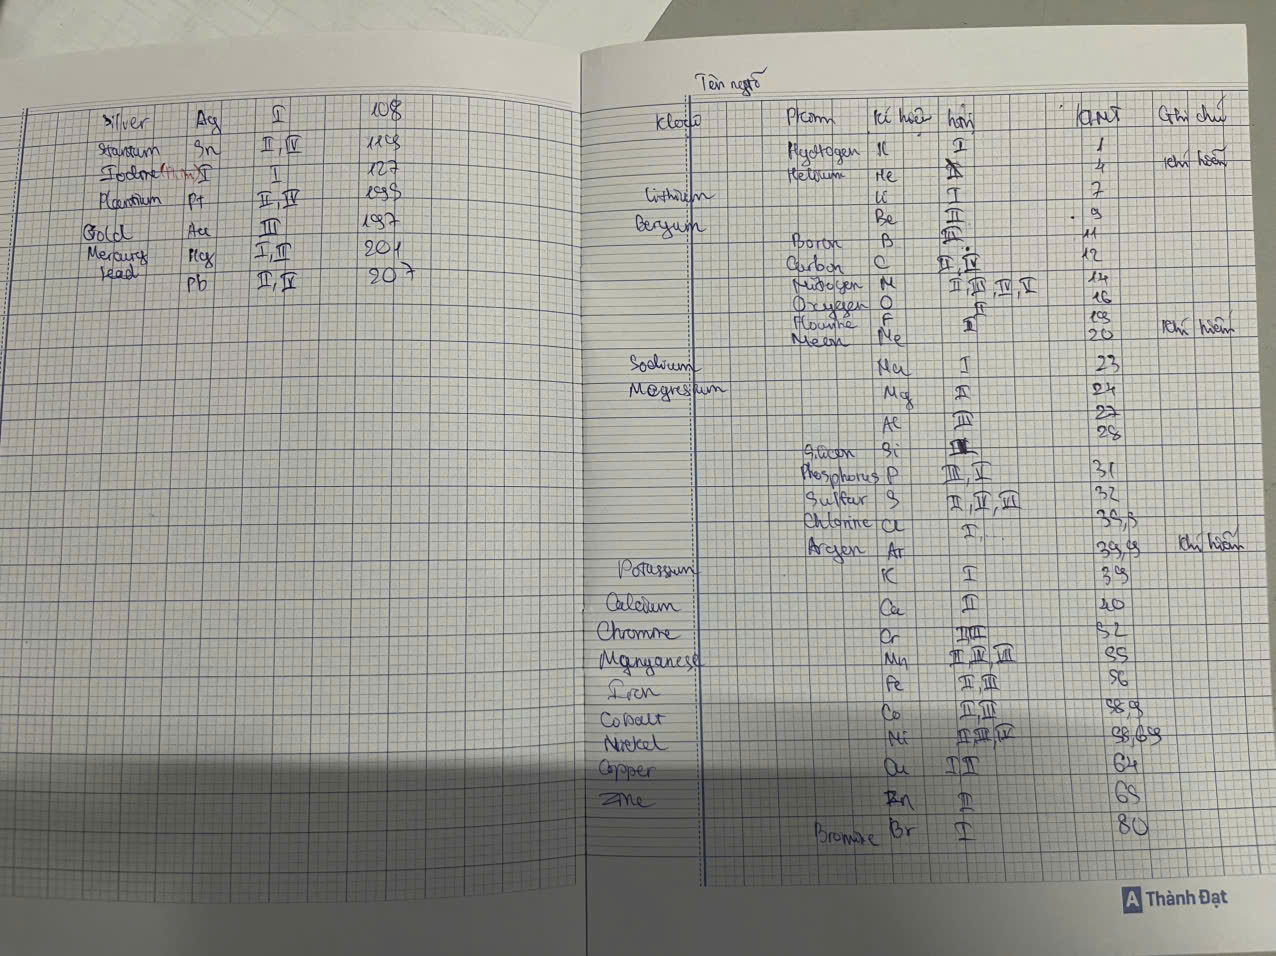 Silver Ag I 108
Stantum Sn II, IV 119
Iodine I I 127
Plantium Pt II, IV 195
Gold Au III 197
Mercury Hg I, II 201
Lead
Pb II, IV 207
Tên ngtố
Kí hiệu KLNT Ghi chú
Hydrogen H I 1
Helium He 4 Khí hiếm
Lithium I 7
Be II 9
Boron B III 11
Carbon C II, IV 12
Nitrogen N II, III, IV, V 14
Oxygen O II 16
Flourine F I 19
Neon Ne 20 Khí hiếm
Sodium Na I 23
Magnesium Mg II 24
Al III 27
Silicon Si 28
Phosphorus P III, V 31
Sulfur S II, IV, VI 32
Chlorine Cl I 35,5
Argon Ar 39,9 Khí hiếm
Potassium K I 39
Calcium Ca II 40
Cr 52
Manganese Mn II, IV, VII 55
Iron Fe II, III 56
Cobalt Co 58,9
Nickel Ni 58,69
Copper Cu 64
Zinc Zn II 65
Bromine Br I 80
A Thành Đạt